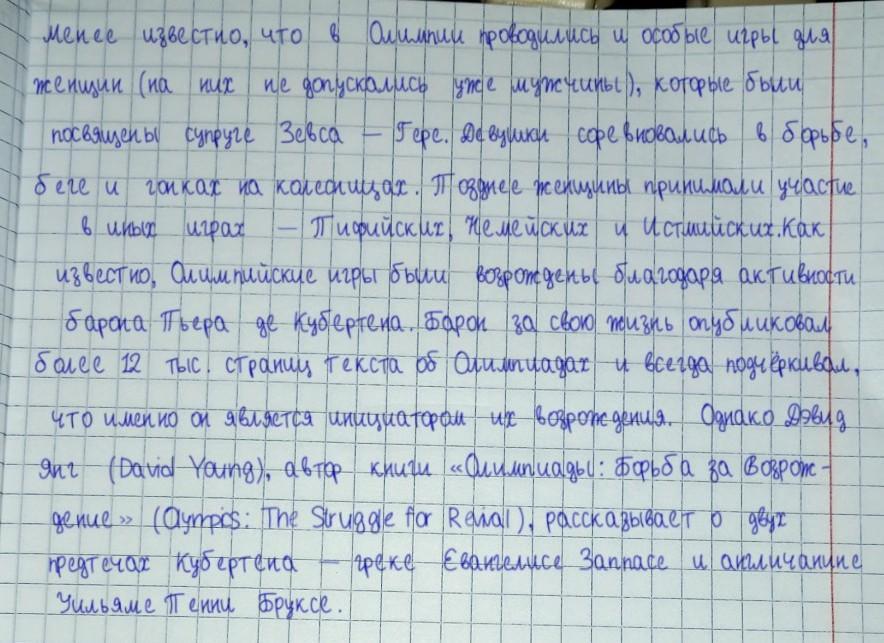 менее известно, что в Олимпии проводились и особые игры для
женщин (на них не допускались уже мужчины), которые были
посвящены супруге Зевса — Гере. Девушки соревновались в борьбе,
беге и гонках на колесницах. Позднее женщины принимали участие
в иных играх — Пифийских, Немейских и Истмийских. Как
известно, Олимпийские игры были возрождены благодаря активности
барона Пьера де Кубертена. Барон за свою жизнь опубликовал
более 12 тыс. страниц текста об Олимпиадах и всегда подчёркивал,
что именно он является инициатором их возрождения. Однако Дэвид
Янг (David Young), автор книги «Олимпиады: Борьба за Возрож-
дение» (Olympics: The Struggle for Revival), рассказывает о двух
предтечах Кубертена — греке Евангелисе Заппасе и англичанине
Уильяме Пенни Бруксе.